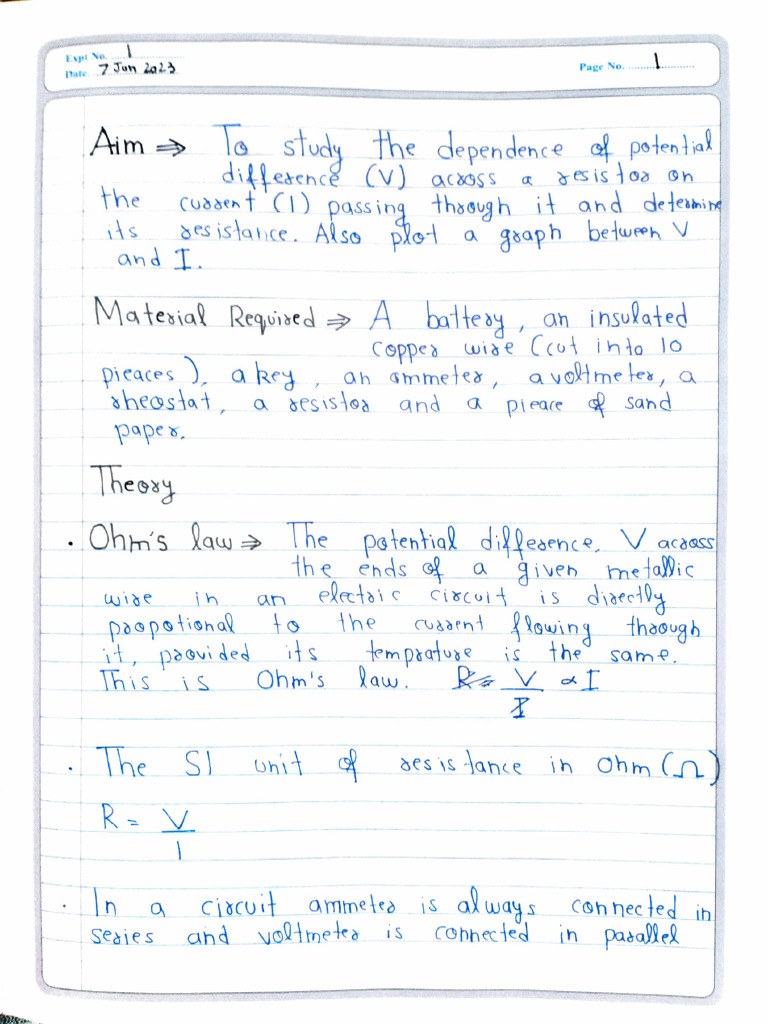 Expt No. 1
Date 7 Jun 2023
Page No. 1
Aim ⇒ To study the dependence of potential
difference (V) across a resistor on
the current (I) passing through it and determine
its resistance. Also plot a graph between V
and I.
Material Required ⇒ A battery, an insulated
copper wire (cut into 10
pieaces), a key, an ammeter, a voltmeter, a
rheostat, a resistor and a pieace of sand
paper.
Theory
• Ohm's law ⇒ The potential difference, V across
the ends of a given metallic
wire in an electric circuit is directly
propotional to the current flowing through
it, provided its temprature is the same.
This is Ohm's law. R= V ∝ I
I
• The SI unit of resistance in ohm (Ω)
R = V
I
• In a circuit ammeter is always connected in
series and voltmeter is connected in parallel